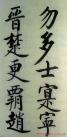 勿多士寔寧
晋楚更覇趙